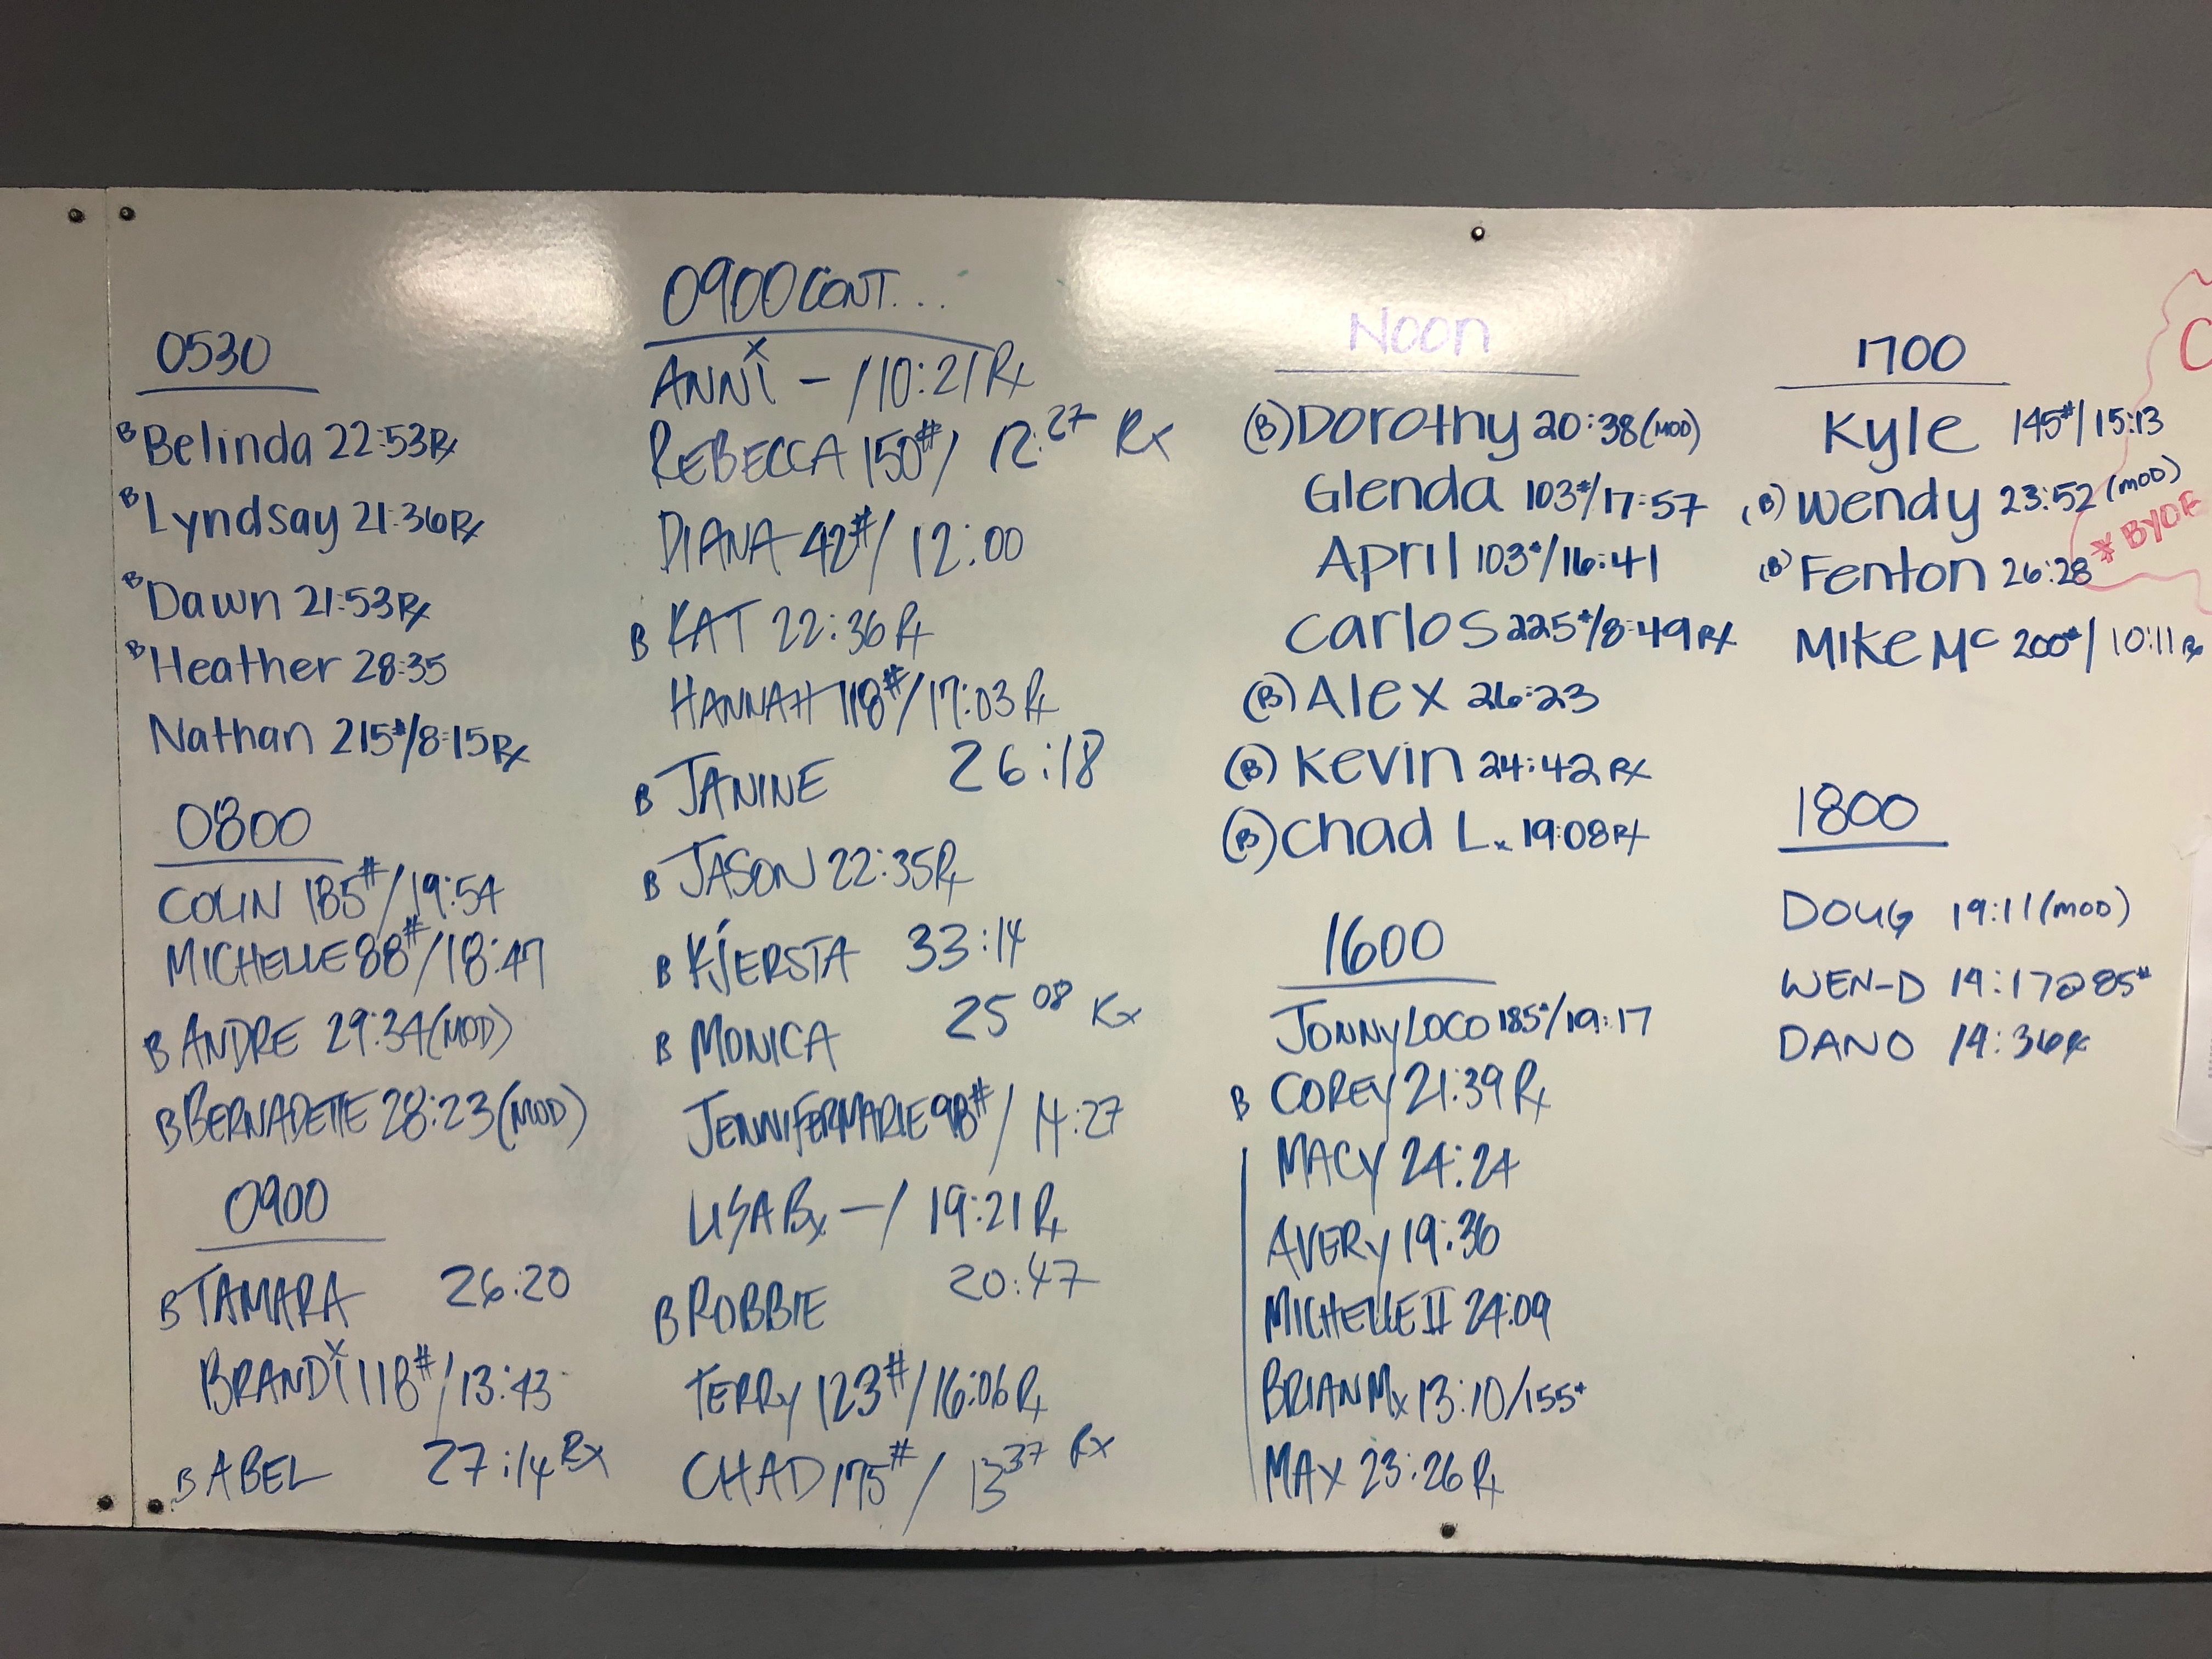 0530
B Belinda 22:53 Rx
B Lyndsay 21:36 Rx
B Dawn 21:53 Rx
B Heather 28:35
Nathan 215#/8:15 Rx
0800
COLIN 185#/19:54
MICHELLE 88#/18:47
B ANDRE 29:34 (MOD)
B BERNADETTE 28:23 (MOD)
0900
B TAMARA 26:20
BRANDI 118#/13:43
B ABEL 27:14 Rx
0900 CONT...
ANNI - /10:21 Rx
REBECCA 150#/ 12:27 Rx
DIANA 42#/ 12:00
B KAT 22:36 Rx
HANNAH 118#/17:03 Rx
B JANINE 26:18
B JASON 22:35 Rx
B KJERSTA 33:14
B MONICA 25 08 Rx
JENNIFERMARIE 98#/ 14:27
LISA B. - / 19:21 Rx
B ROBBIE 20:47
TERRY 123#/16:06 Rx
CHAD 175#/ 13 37 Rx
Noon
(B) Dorothy 20:38 (MOD)
Glenda 103#/17:57
April 103#/16:41
Carlos 225#/8:49 Rx
(B) Alex 26:23
(B) Kevin 24:42 Rx
(B) Chad L. 19:08 Rx
1600
JONNY LOCO 185#/19:17
B COREY 21:39 Rx
MACY 24:24
AVERY 19:36
MICHELLE II 24:09
BRIAN M. 13:10/155#
MAX 23:26 Rx
1700
Kyle 145#/15:13
(B) Wendy 23:52 (MOD)
(B) Fenton 26:28
MIKE MC 200#/ 10:11 Rx
1800
DOUG 19:11 (MOD)
WEN-D 19:17 @ 85#
DANO 19:36
C
* BYOF